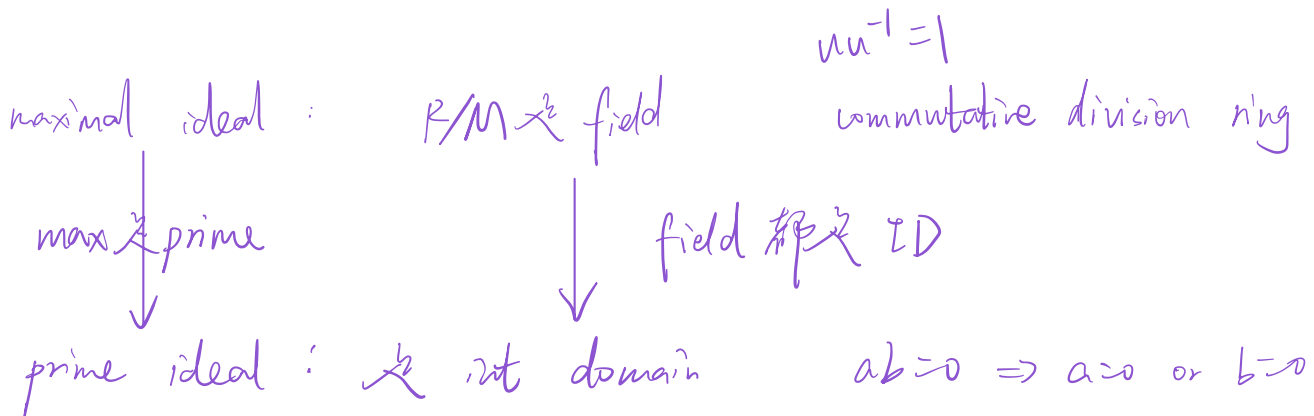 uu⁻¹ = 1
maximal ideal : R/M 是 field commutative division ring
max 是 prime field 都是 ID
prime ideal : 是 int domain ab=0 ⇒ a=0 or b=0